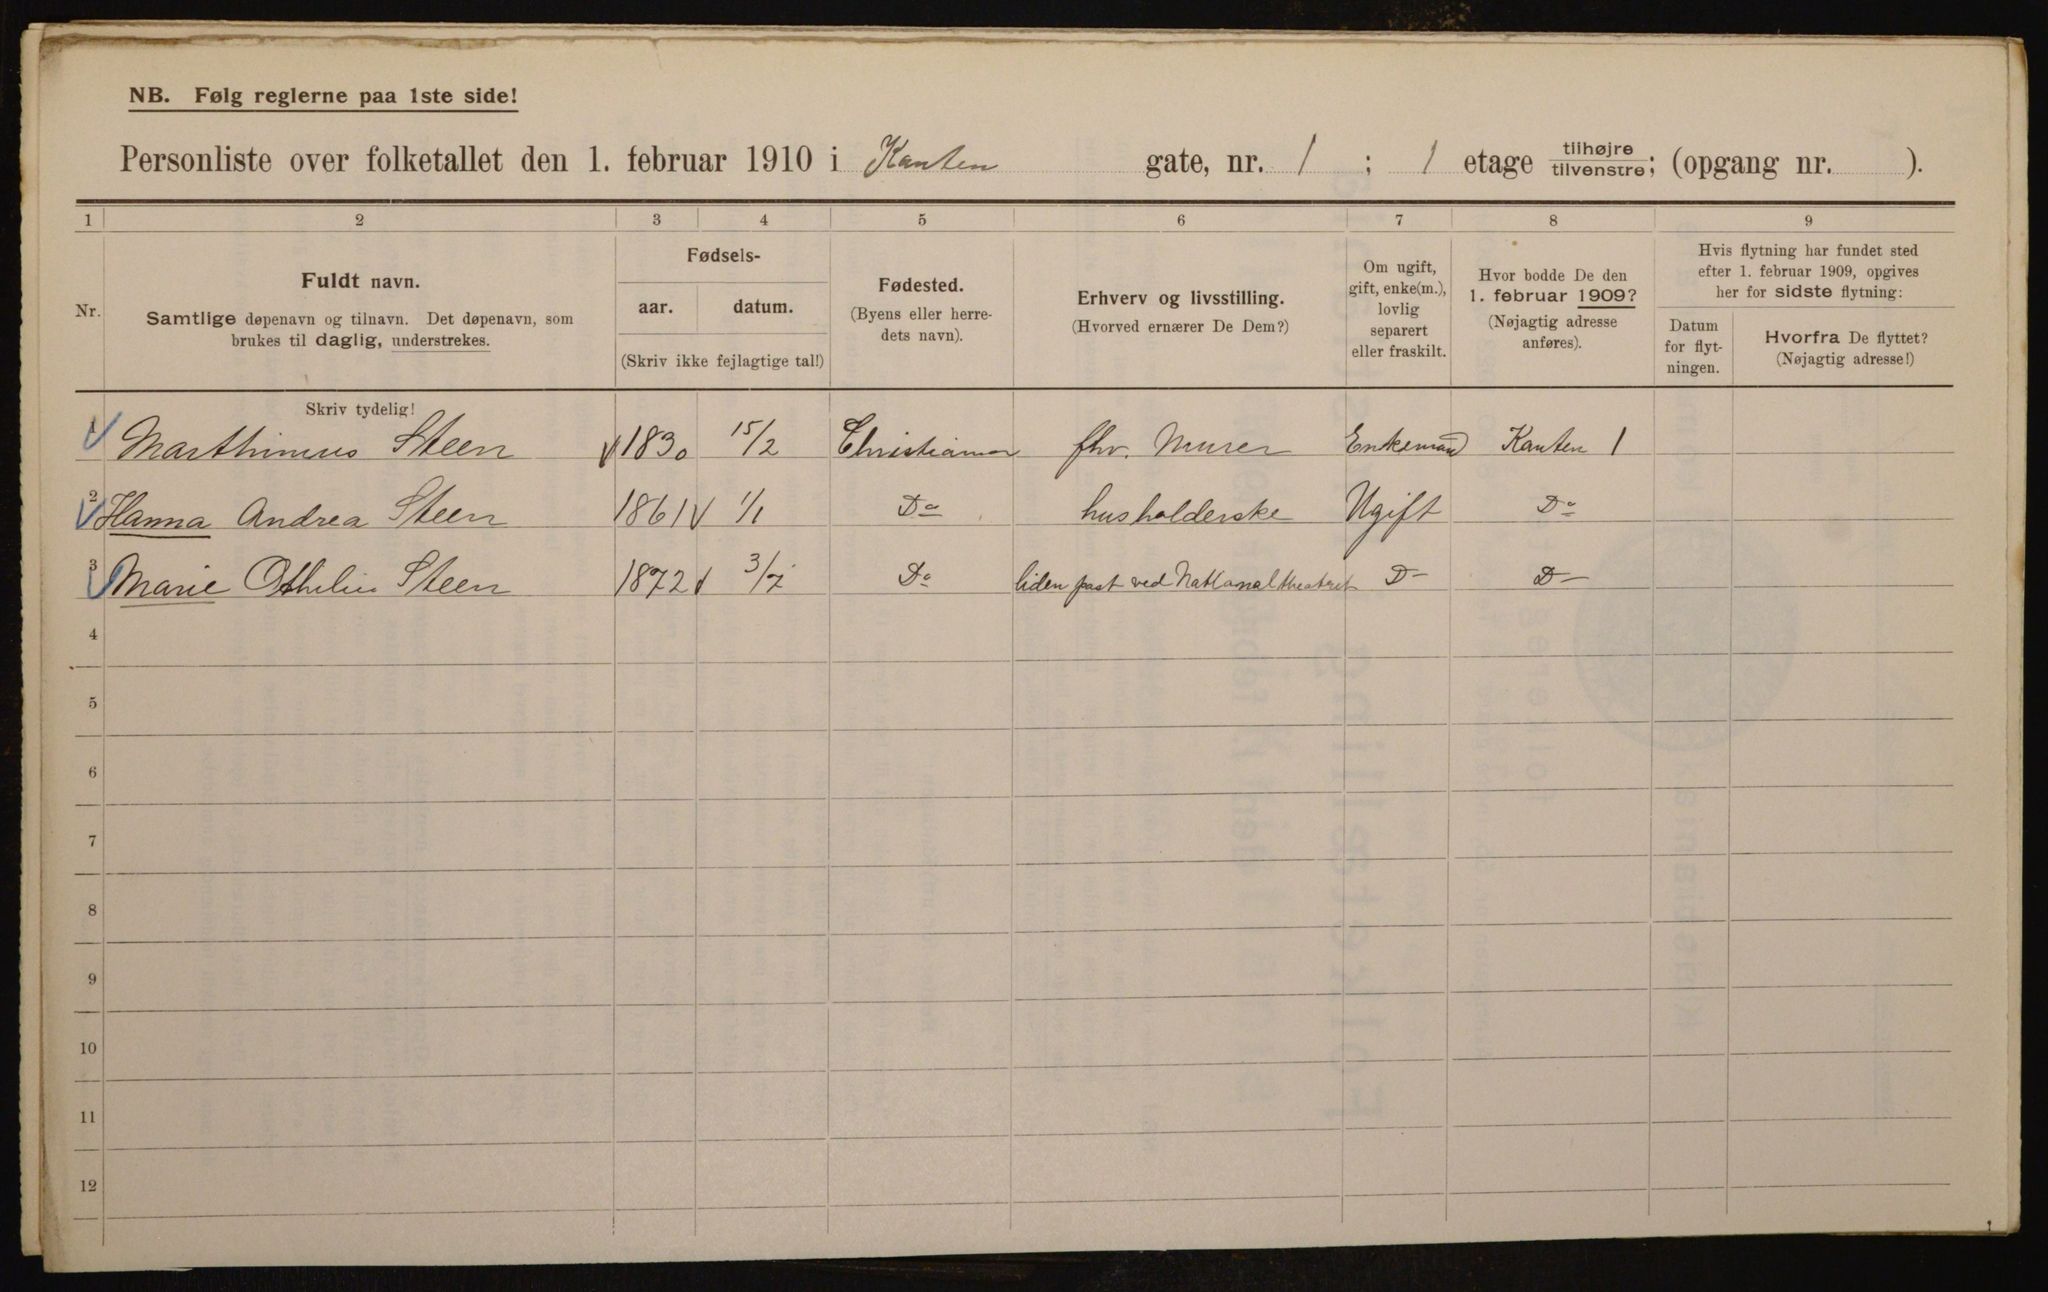 NB. Følg reglerne paa 1ste side!
Personliste over folketallet den 1. februar 1910 i Kanten gate, nr. 1 ; 1 etage tilhøjre/tilvenstre; (opgang nr. ).
1 2 3 4 5 6 7 8 9
Nr.
Fuldt navn.
Samtlige døpenavn og tilnavn. Det døpenavn, som
brukes til daglig, understrekes.
Skriv tydelig!
Fødsels-
aar. datum.
(Skriv ikke fejlagtige tal!)
Fødested.
(Byens eller herre-
dets navn).
Erhverv og livsstilling.
(Hvorved ernærer De Dem?)
Om ugift,
gift, enke(m.),
lovlig
separert
eller fraskilt.
Hvor bodde De den
1. februar 1909?
(Nøjagtig adresse
anføres).
Hvis flytning har fundet sted
efter 1. februar 1909, opgives
her for sidste flytning:
Datum
for flyt-
ningen.
Hvorfra De flyttet?
(Nøjagtig adresse!)
1 Marthinius Steen 1830 15/2 Christiania fhv. Murer Enkemand Kanten 1
2 Hanna Andrea Steen 1861 1/1 Do husholderske Ugift Do
3 Marie Othilie Steen 1872 3/7 Do liden post ved Nationaltheatret D- D-
4
5
6
7
8
9
10
11
12